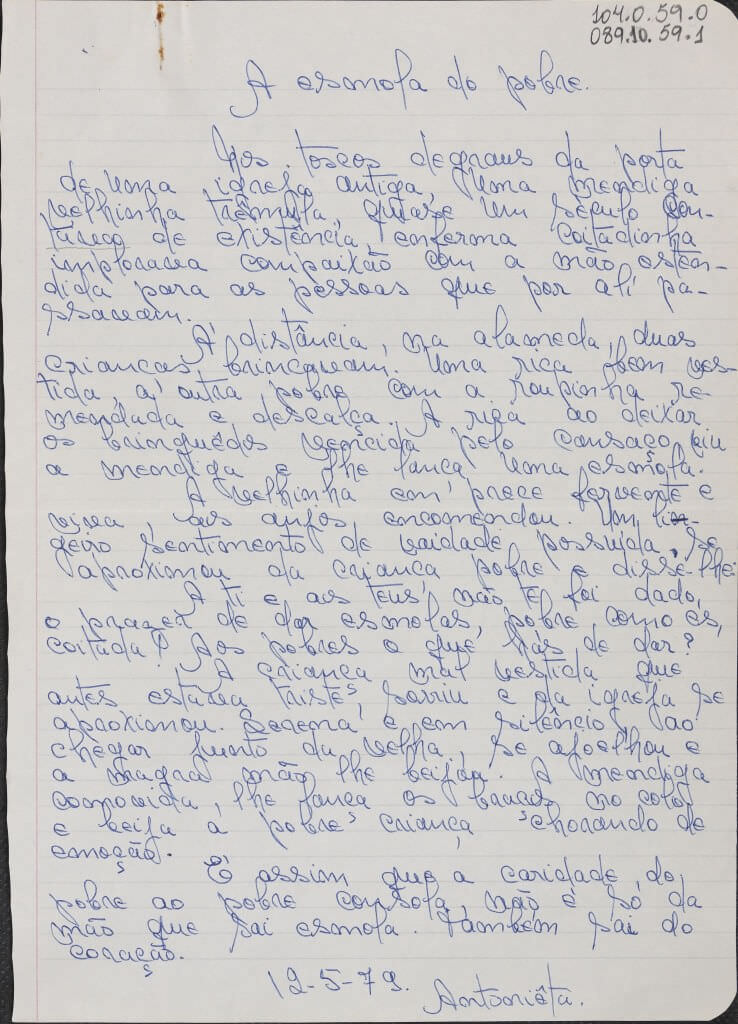 104.0.59.0
089.10.59.1
A esmola do pobre.
Nos toscos degraus da porta
de uma igreja antiga, uma mendiga
velhinha trêmula, quase um século con-
tando de existência, enferma coitadinha
implorava compaixão com a mão esten-
dida para as pessoas que por ali pa-
ssavam.
À distância, na alameda, duas
crianças brincavam. Uma rica bem ves-
tida, a outra pobre com a roupinha re-
mendada e descalça. A rica ao deixar
os brinquedos vencida pelo cansaço, viu
a mendiga e lhe lança uma esmola.
A velhinha em prece fervente e
viva, aos anjos encomendou. Um li-
geiro sentimento de vaidade possuida, se
aproximou da criança pobre e disse-lhe:
A ti e aos teus, não te foi dado,
o prazer de dar esmolas, pobre como és,
coitada! Aos pobres o que hás de dar?
A criança mal vestida que
antes estava triste, sorriu e da igreja se
aproximou. Serena e em silêncio, ao
chegar junto da velha, se ajoelhou e
a magra mão lhe beijou. A mendiga
comovida, lhe lança os braços no colo
e beija a pobre criança, chorando de
emoção.
É assim que a caridade do
pobre ao pobre consola, não é só da
mão que sai esmola. Também sai do
coração.
12-5-79.
Antoniêta.